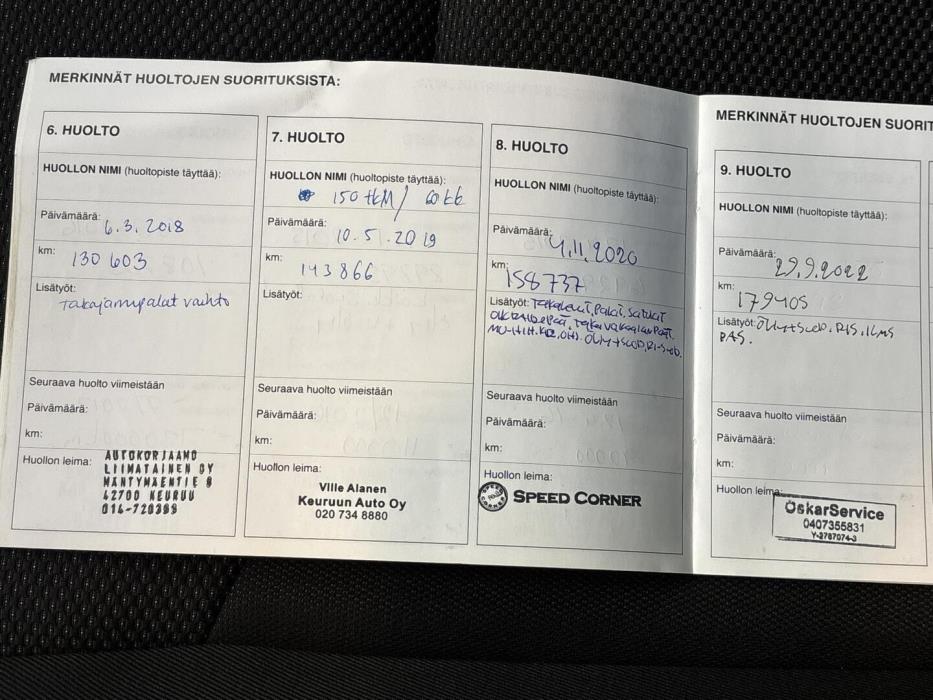 MERKINNÄT HUOLTOJEN SUORITUKSISTA:
6. HUOLTO
HUOLLON NIMI (huoltopiste täyttää):
Päivämäärä: 6.3.2018
km: 130 603
Lisätyöt: Takajarrupalat vaihto
Seuraava huolto viimeistään
Päivämäärä:
km:
Huollon leima:
AUTOKORJAAMO
LIIMATAINEN OY
MÄNTYMÄENTIE 8
42700 KEURUU
014-720399
7. HUOLTO
HUOLLON NIMI (huoltopiste täyttää):
150 tkm / 60 kk
Päivämäärä: 10.5.2019
km: 143 866
Lisätyöt:
Seuraava huolto viimeistään
Päivämäärä:
km:
Huollon leima:
Ville Alanen
Keuruun Auto Oy
020 734 8880
8. HUOLTO
HUOLLON NIMI (huoltopiste täyttää):
Päivämäärä: 4.11.2020
km: 158737
Lisätyöt: Takalevyt, Palat, Satulat
Öljy+suod, Ri-suod.
Seuraava huolto viimeistään
Päivämäärä:
km:
Huollon leima:
SPEED CORNER
MERKINNÄT HUOLTOJEN SUORIT
9. HUOLTO
HUOLLON NIMI (huoltopiste täyttää):
Päivämäärä: 29.9.2022
km: 179405
Lisätyöt: Öljy+suod, RIS, ILMS
PAS.
Seuraava huolto viimeistään
Päivämäärä:
km:
Huollon leima:
OskarService
0407355831
Y-2787074-3